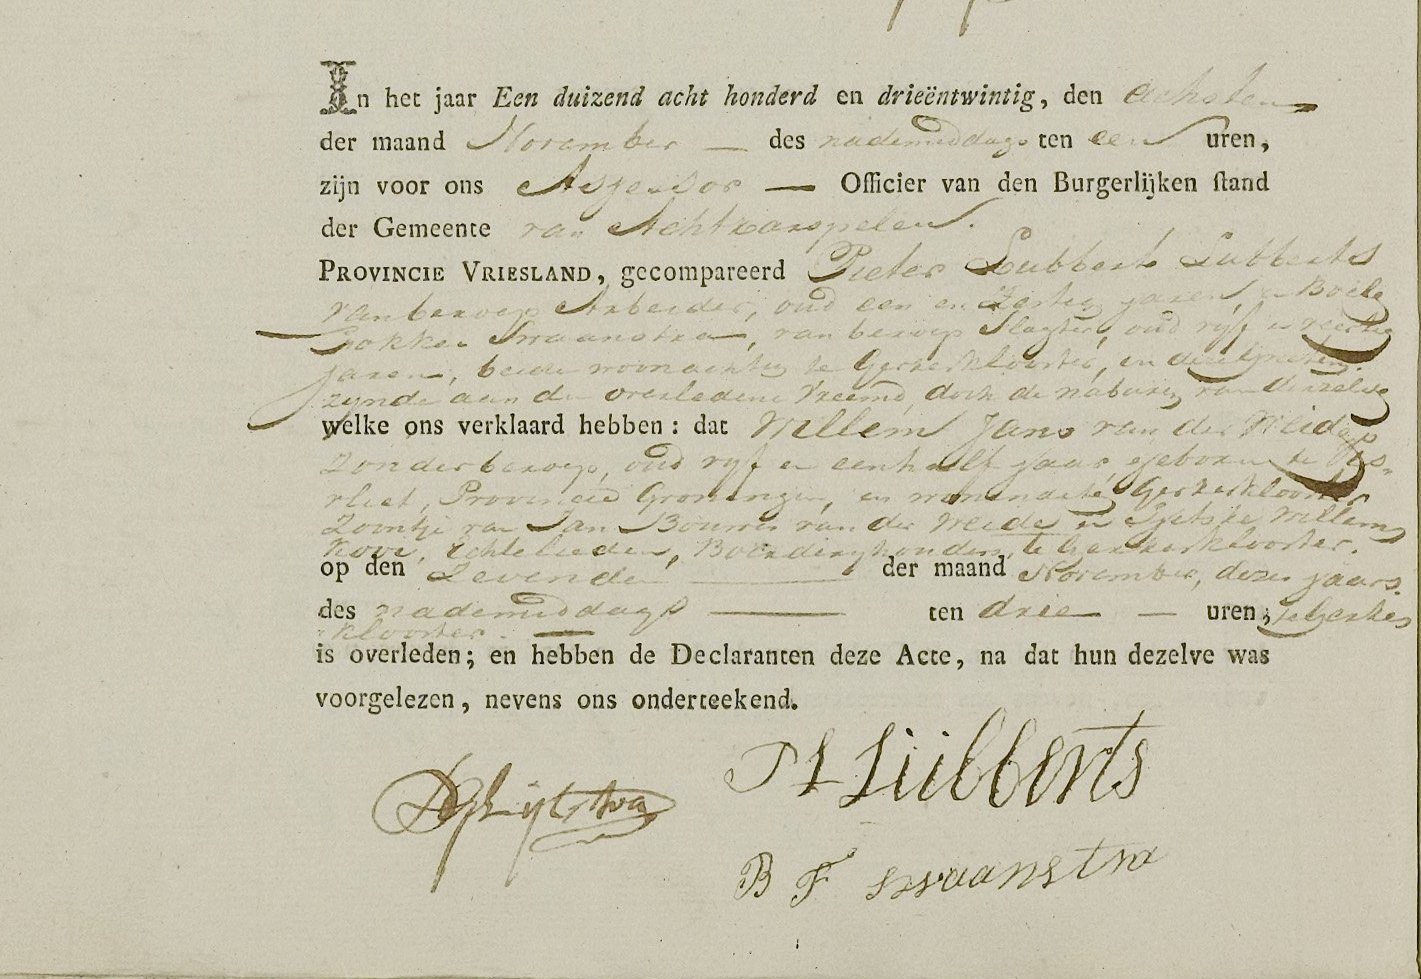 In het jaar Een duizend acht honderd en drieëntwintig, den achsten
der maand November — des nademiddags ten een uren,
zijn voor ons Assessor — Officier van den Burgerlijken stand
der Gemeente van Achtkarspelen.
PROVINCIE VRIESLAND, gecompareerd Pieter Lubberts Lubberts
van beroep Arbeider, oud een en Zestig jaren, en Boele
Fokkes Swaanstra, van beroep Slagter, oud vyf en veertig
jaren, beide woonachtig te Gerkesklooster, en
zynde aan den overledene Vreemd, doch de naburen van denzelve
welke ons verklaard hebben: dat Willem Jans van der Weide
Zonder beroep, oud vyf en een half jaar, geboren te Vis-
vliet, Provincie Groningen, en woonachtig Gerkesklooster
Zoontje van Jan Bouwes van der Weide en Tjetske Willems
Echtelieden, Boerderyhouders, te Gerkesklooster.
op den Zevenden — der maand November, dezes jaars.
des nademiddags — ten drie — uren, te Gerkes
klooster. —
is overleden; en hebben de Declaranten deze Acte, na dat hun dezelve was
voorgelezen, nevens ons onderteekend.
P L Lübberts
B F swaanstra